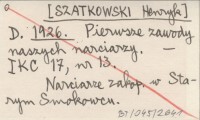 [SZATKOWSKI Henryk]
D. 1926. Pierwsze zawody
naszych narciarzy. —
IKC 17, nr 13.
Narciarze zakop. w Sta-
rym Smokowcu.